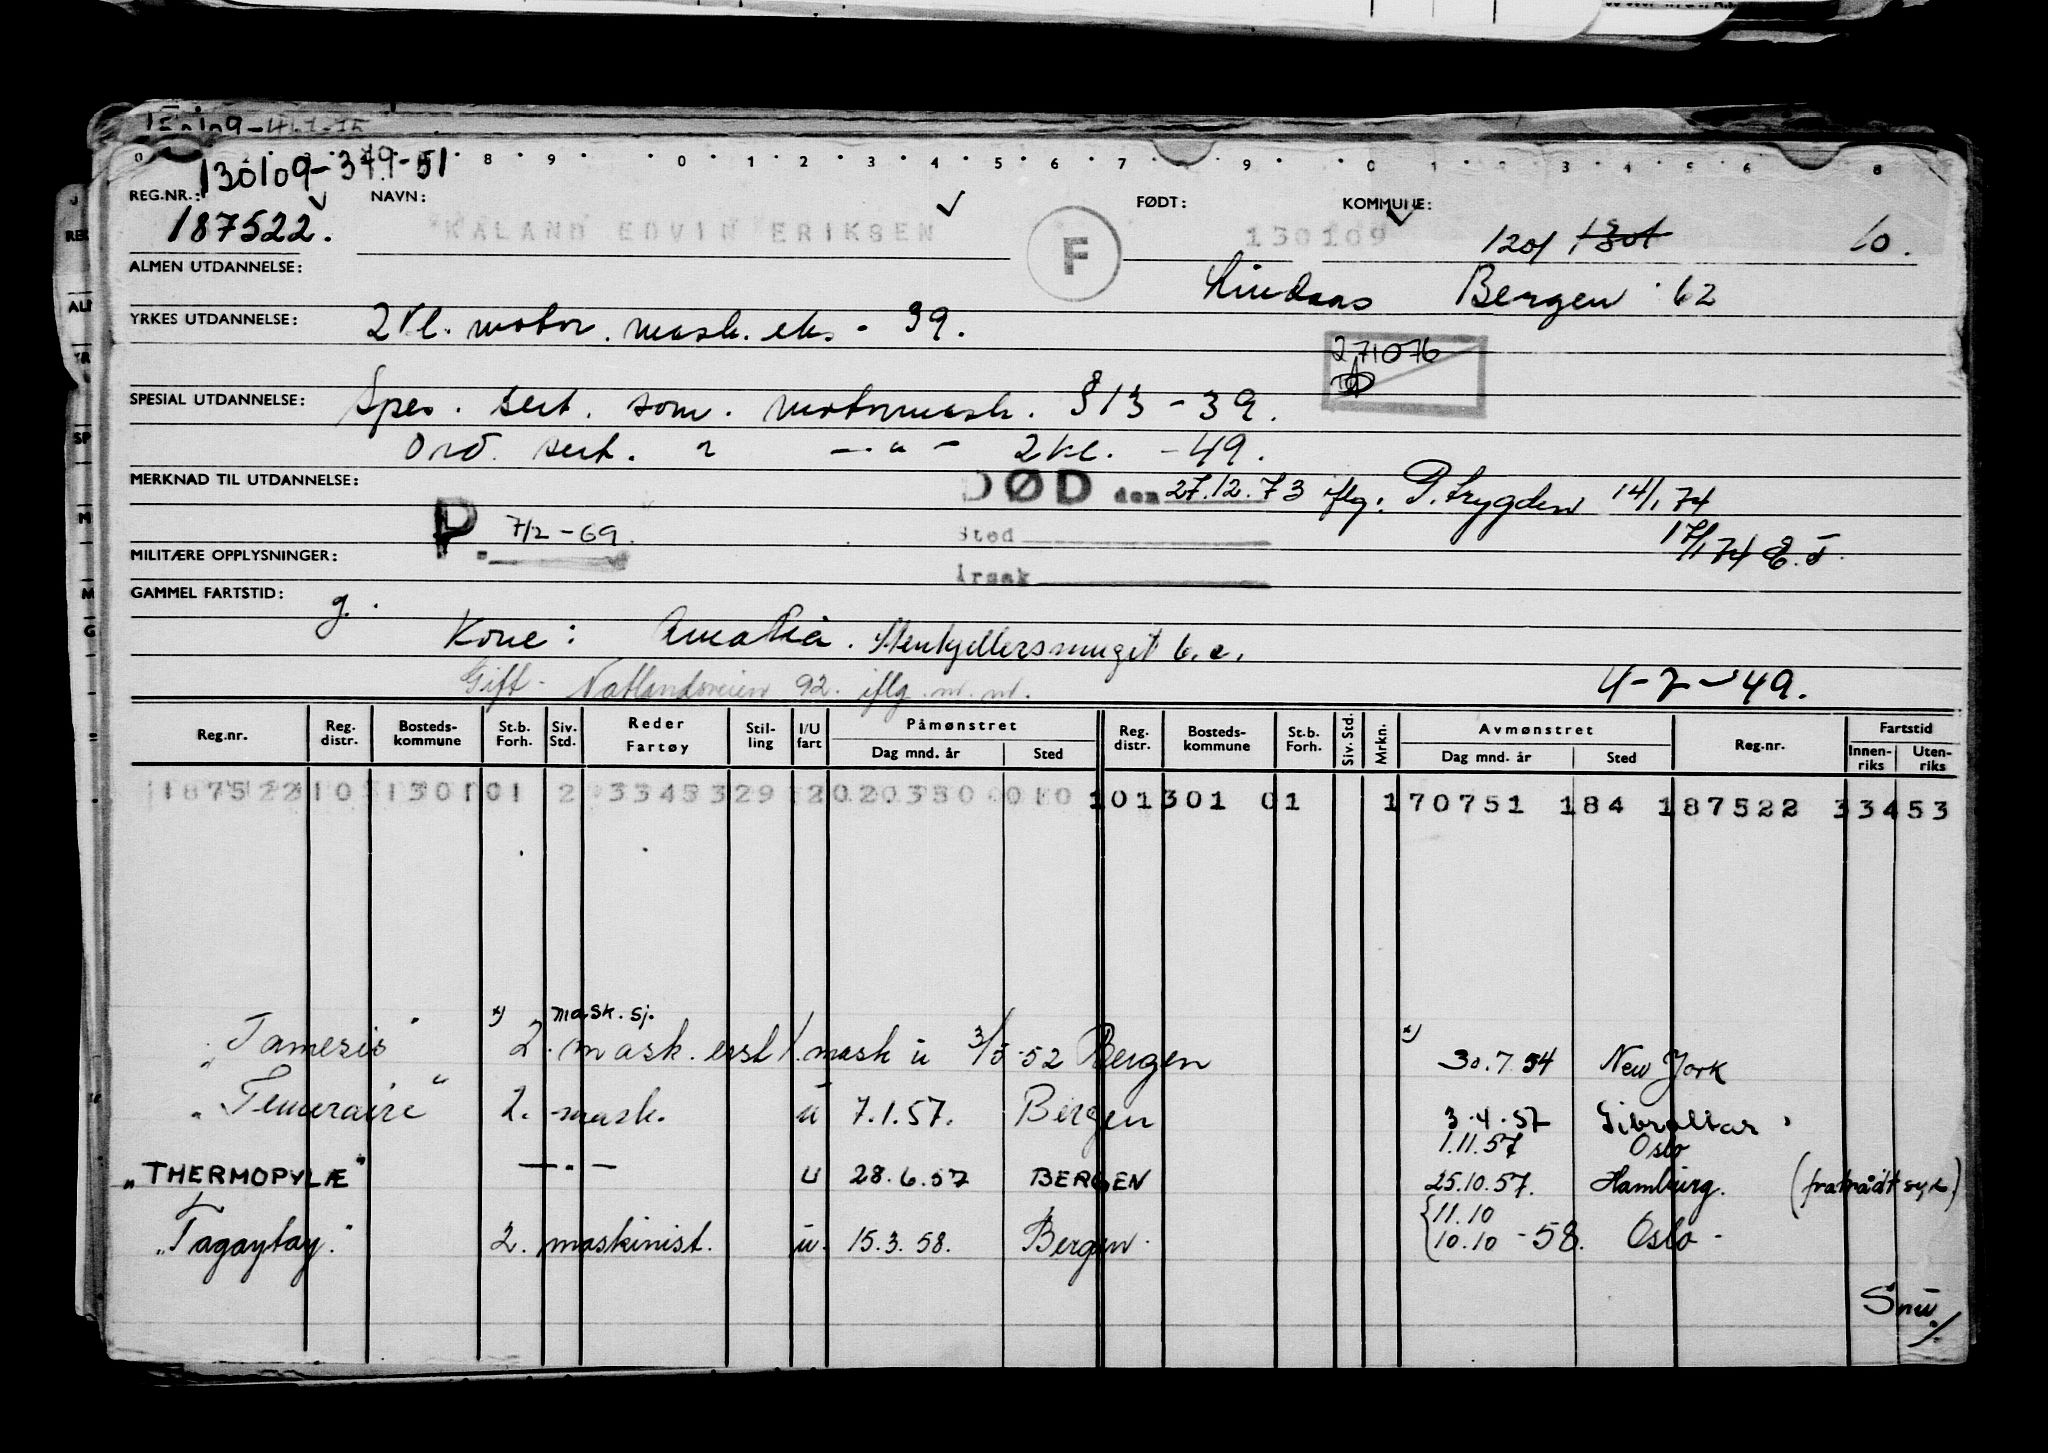 130109-379-51
REG.NR.: NAVN: FØDT: KOMMUNE:
187522. KALAND EDVIN ERIKSEN F 130109 1201 1301 10.
ALMEN UTDANNELSE: Lindaas Bergen 62
YRKES UTDANNELSE: 2 kl. motor. mask. eks. - 39.
271076
SPESIAL UTDANNELSE: Spes. sert. som. motormask. §13 - 39.
Ord. sert. " — " — 2 kl. - 49.
MERKNAD TIL UTDANNELSE: DØD den 27.12.73 iflg. P. trygden 14/1 74
P. 7/2 - 69. Sted 17/1 74
MILITÆRE OPPLYSNINGER: Årsak
GAMMEL FARTSTID: g.
Kone: Amalia. Stenkjellersmuget 6.c.
Gift. Natlandsveien 92. iflg. m.m. 4-7-49.
Reg.nr. Reg. distr. Bosteds-kommune St.b. Forh. Siv. Std. Reder Fartøy Stil-ling I/U fart Påmønstret Dag mnd. år Sted Reg. distr. Bosteds-kommune St.b. Forh. Siv. Std. Mrkn. Avmønstret Dag mnd. år Sted Reg.nr. Fartstid Innen-riks Uten-riks
187522 10 1301 01 2 33453 29 2 020350 010 10 1301 01 1 70751 184 187522 33453
x) mask. sj. x)
"Tamesis" 2. mask. 1. mask u 3/5-52 Bergen 30.7.54 New York
"Temeraire" 2. mask. u 7.1.57. Bergen 3.4.57 Gibraltar
1.11.57 Oslo
"THERMOPYLÆ" — " — U 28.6.57 BERGEN 25.10.57. Hamburg. (fratrådt syk.)
"Tagaytay." 2. maskinist. u. 15.3.58. Bergen. {11.10
10.10 -58. Oslo -
Snu ./.